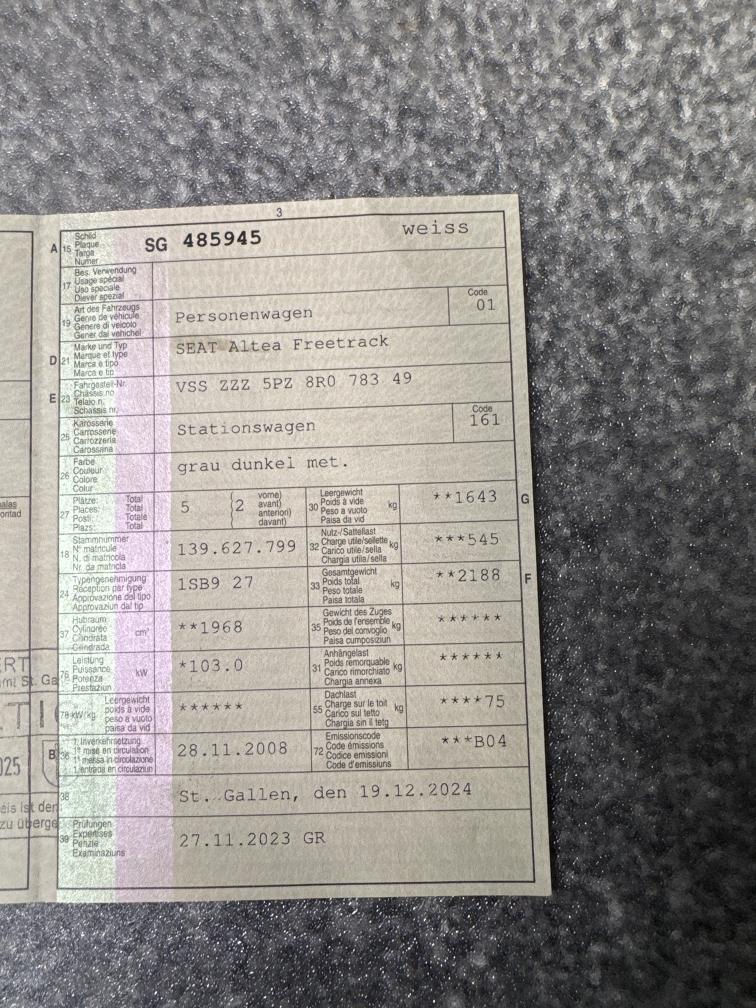 3
A 15 Schild
Plaque
Targa
Numer
SG 485945 weiss
17 Bes. Verwendung
Usage spécial
Uso speciale
Diever spezial
19 Art des Fahrzeugs
Genre de véhicule
Genere di veicolo
Gener dal vehichel
Personenwagen
Code
01
D 21 Marke und Typ
Marque et type
Marca e tipo
Marca e tip
SEAT Altea Freetrack
E 23 Fahrgestell-Nr.
Châssis no
Telaio n.
Schassis nr.
VSS ZZZ 5PZ 8R0 783 49
25 Karosserie
Carrosserie
Carrozzeria
Carossaria
Stationswagen
Code
161
26 Farbe
Couleur
Colore
Colur
grau dunkel met.
27 Plätze: Total
Places: Total
Posti: Totale
Plazs: Total
5 {2 vorne)
avant)
anteriori)
davant)
30 Leergewicht
Poids à vide
Peso a vuoto
Paisa da vid
kg
**1643 G
18 Stammnummer
N° matricule
N. di matricola
Nr. da matricla
139.627.799
32 Nutz-/Sattellast
Charge utile/sellette
Carico utile/sella
Chargia utila/sella
kg
***545
24 Typengenehmigung
Réception par type
Approvazione del tipo
Approvaziun dal tip
1SB9 27
33 Gesamtgewicht
Poids total
Peso totale
Paisa totala
kg
**2188 F
37 Hubraum
Cylindrée
Cilindrata
Cilindrada
cm³
**1968
35 Gewicht des Zuges
Poids de l'ensemble
Peso del convoglio
Paisa cumposiziun
kg
******
76 Leistung
Puissance
Potenza
Prestaziun
kW
*103.0
31 Anhängelast
Poids remorquable
Carico rimorchiato
Chargia annexa
kg
******
78 kW/kg Leergewicht
poids à vide
peso a vuoto
paisa da vid
******
55 Dachlast
Charge sur le toit
Carico sul tetto
Chargia sin il tetg
kg
****75
B 36 1. Inverkehrsetzung
1re mise en circulation
1a messa in circolazione
1. entrada en circulaziun
28.11.2008
72 Emissionscode
Code émissions
Codice emissioni
Code d'emissiuns
***B04
38
St. Gallen, den 19.12.2024
39 Prüfungen
Expertises
Perizie
Examinaziuns
27.11.2023 GR
ERT
St. Ga
TI
025
eis ist der
zu überge